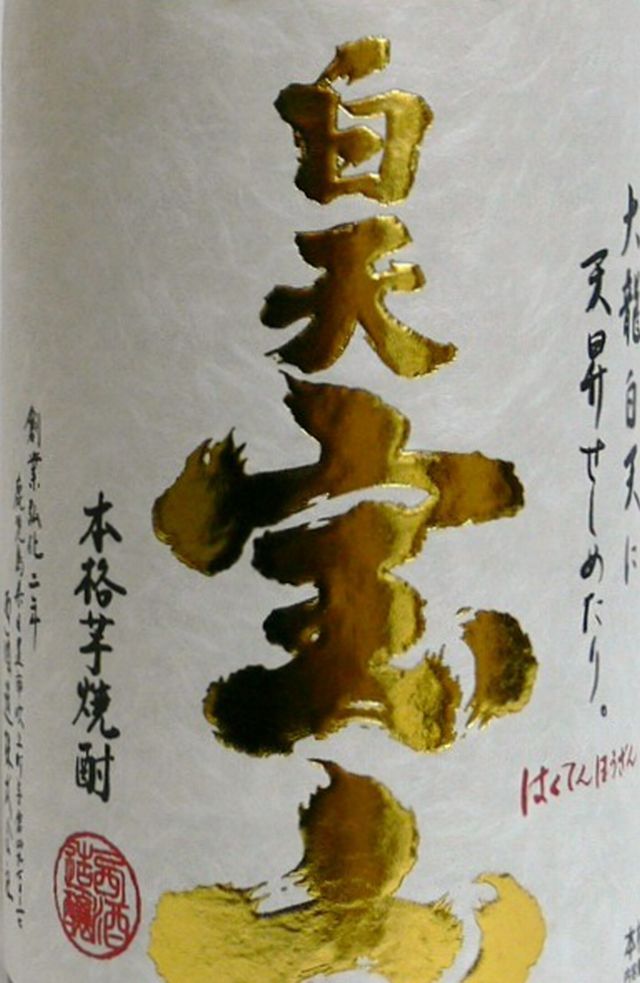 大龍白天に
天昇せしめたり。
はくてんほうざん
白天宝山
本格芋焼酎
創業弘化二年
西酒造